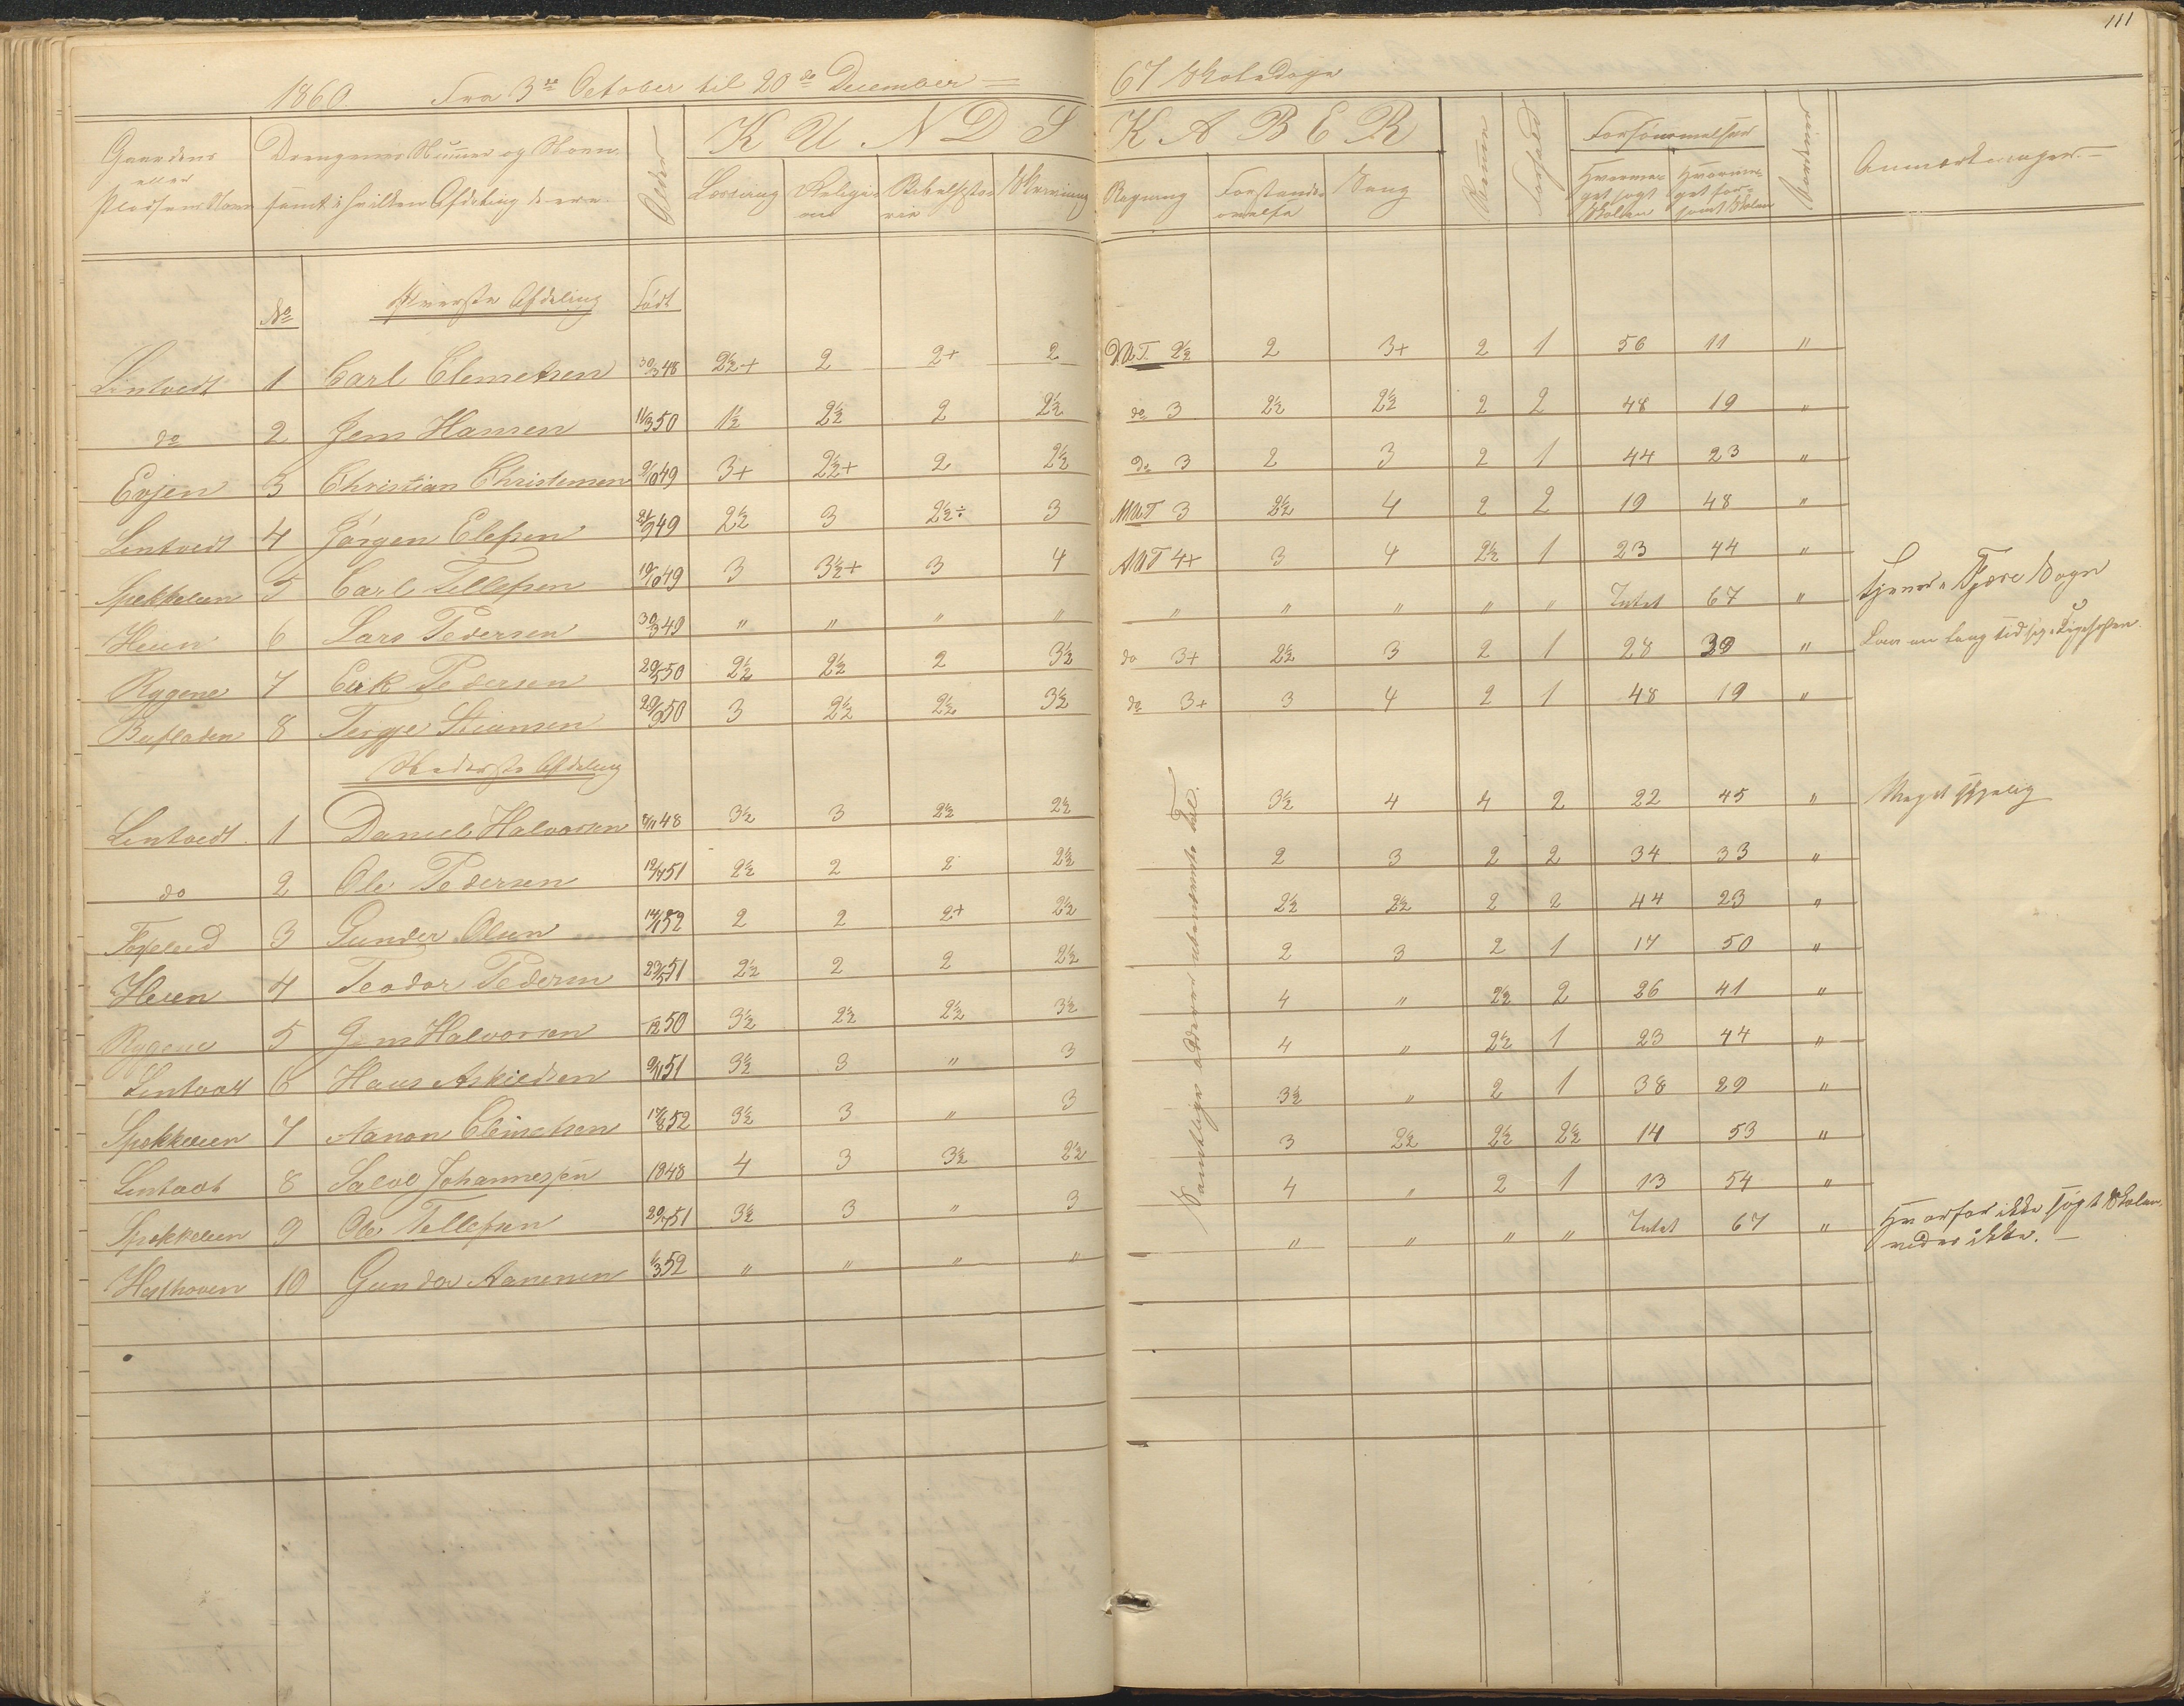 111
1860 Fra 3de October til 20de December = 67 Skoledage
Gaardens eller Pladsens Navn
Drengenes Numer og Navn samt i hvilken Afdeling de ere.
Alder
KUNDSKABER
Læsning Religion Bibelhistorie Skrivning Regning Forstandsøvelse Sang
Evne Forhold
Forsømmelser
Hvormeget søgt Skolen Hvormeget forsømt Skolen
Anmærkninger.
No Øverste Afdeling Født
Lintvedt 1 Carl Clemetsen 30/3 48 2½+ 2 2+ 2 2½ 2 3+ 2 1 56 11 "
do 2 Jens Hansen 11/3 50 1½ 2½ 2 2½ do 3 2½ 2½ 2 2 48 19 "
Evjen 3 Christian Christensen 9/10 49 3+ 2½+ 2 2½ do 3 2 3 2 1 44 23 "
Lintvedt 4 Jörgen Elefsen 21/9 49 2½ 3 2½÷ 3 MUT 3 2½ 4 2 2 19 48 "
Spekkeleen 5 Carl Tellefsen 19/10 49 3 3½+ 3 4 AUT 4+ 3 4 2½ 1 23 44 "
Heien 6 Lars Pedersen 30/3 49 " " " " " " " " " Intet 67 " Tjener i Tjøre Sogn
Rygene 7 Eirk Pedersen 20/5 50 2½ 2½ 2 3½ do 3+ 2½ 3 2 1 28 39 "
Buflaten 8 Tergje Stiansen 29/9 50 3 2½ 2½ 3½ do 3+ 3 4 2 1 48 19 "
Nederste Afdeling
Samtlige adderer ubenævnte Tal.
Lintvedt 1 Daniel Halvorsen 8/11 48 3½ 3 2½ 2½ 3½ 4 4 2 22 45 " Meget sygelig
do 2 Ole Pedersen 19/7 51 2½ 2 2 2½ 2 3 2 2 34 33 "
Foxelied 3 Gunder Olsen 14/1 52 2 2 2+ 2½ 2½ 2½ 2 2 44 23 "
Heien 4 Teodor Pedersen 23/5 51 2½ 2 2 2½ 2 3 2 1 17 50 "
Rygene 5 Jens Halvorsen 12 50 3½ 2½ 2½ 3½ 4 " 2½ 2 26 41 "
Lintvedt 6 Hans Askildsen 9/11 51 3½ 3 " 3 4 " 2½ 1 23 44 "
Spekkeleen 7 Aanon Clemetsen 17/8 52 3½ 3 " 3 3½ " 2 1 38 29 "
Lintvedt 8 Salve Johannesen 1848 4 3 3½ 2½ 3 2½ 2½ 2½ 14 53 "
Spekkeleen 9 Ole Tellefsen 20/7 51 3½ 3 " 3 4 " 2 1 13 54 "
Hesthoven 10 Gunder Aanensen 1/3 52 " " " " " " " " Intet 67 " Hvorfor ikke søgt Skolen vides ikke.